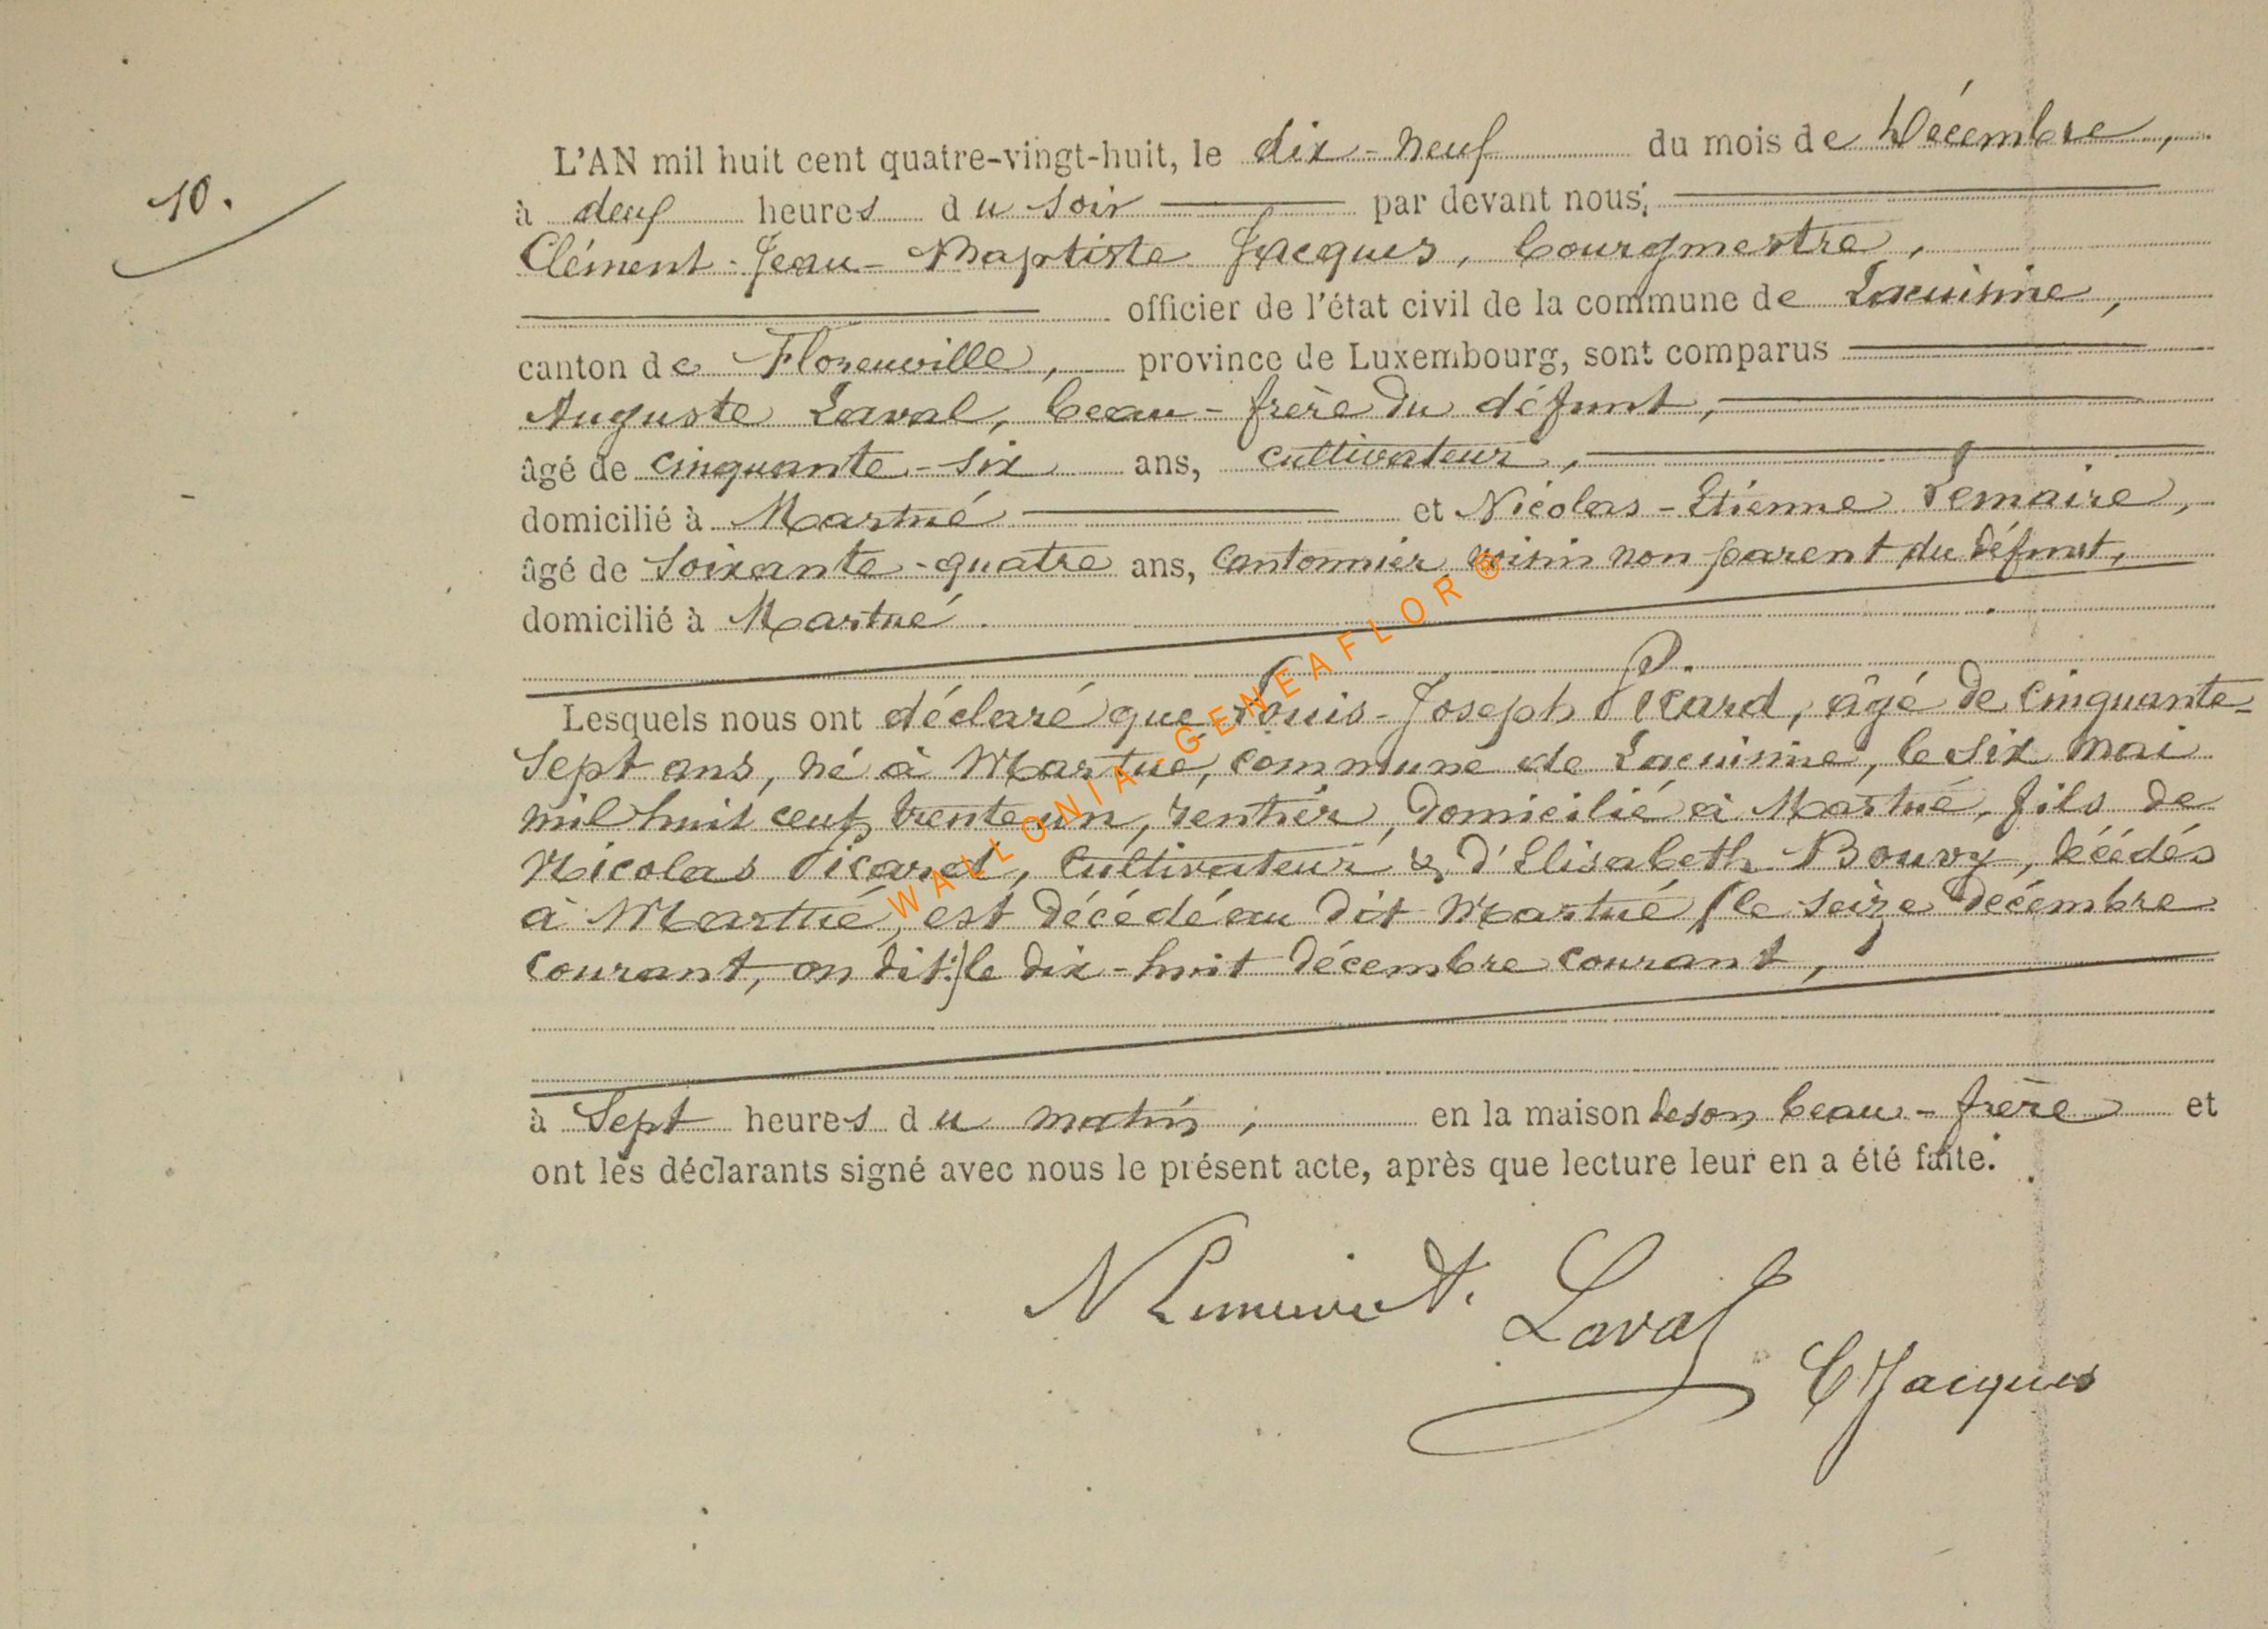 10.
L'AN mil huit cent quatre-vingt-huit, le dix-neuf du mois de Décembre,
à deux heures du soir par devant nous,
Clément-Jean-Baptiste Jacques, bourgmestre,
officier de l'état civil de la commune de Lacuisine,
canton de Florenville, province de Luxembourg, sont comparus
Auguste Laval, beau-frère du défunt,
âgé de cinquante-six ans, cultivateur,
domicilié à Martué et Nicolas-Etienne Lemaire,
âgé de soixante-quatre ans, cantonnier voisin non parent du défunt,
domicilié à Martué.
Lesquels nous ont déclaré que Louis-Joseph Picard, âgé de cinquante-
sept ans, né à Martué, commune de Lacuisine, le six mai
mil huit cent trente un, rentier, domicilié à Martué, fils de
Nicolas Picard, cultivateur & d'Elisabeth Bouvy, décédés
à Martué, est décédé au dit Martué (le seize décembre
courant, on dit:) le dix-huit décembre courant,
à sept heures du matin, en la maison de son beau-frère et
ont les déclarants signé avec nous le présent acte, après que lecture leur en a été faite.
N Lemaire A. Laval
C Jacques
WALLONIA-GENEAFLOR ®